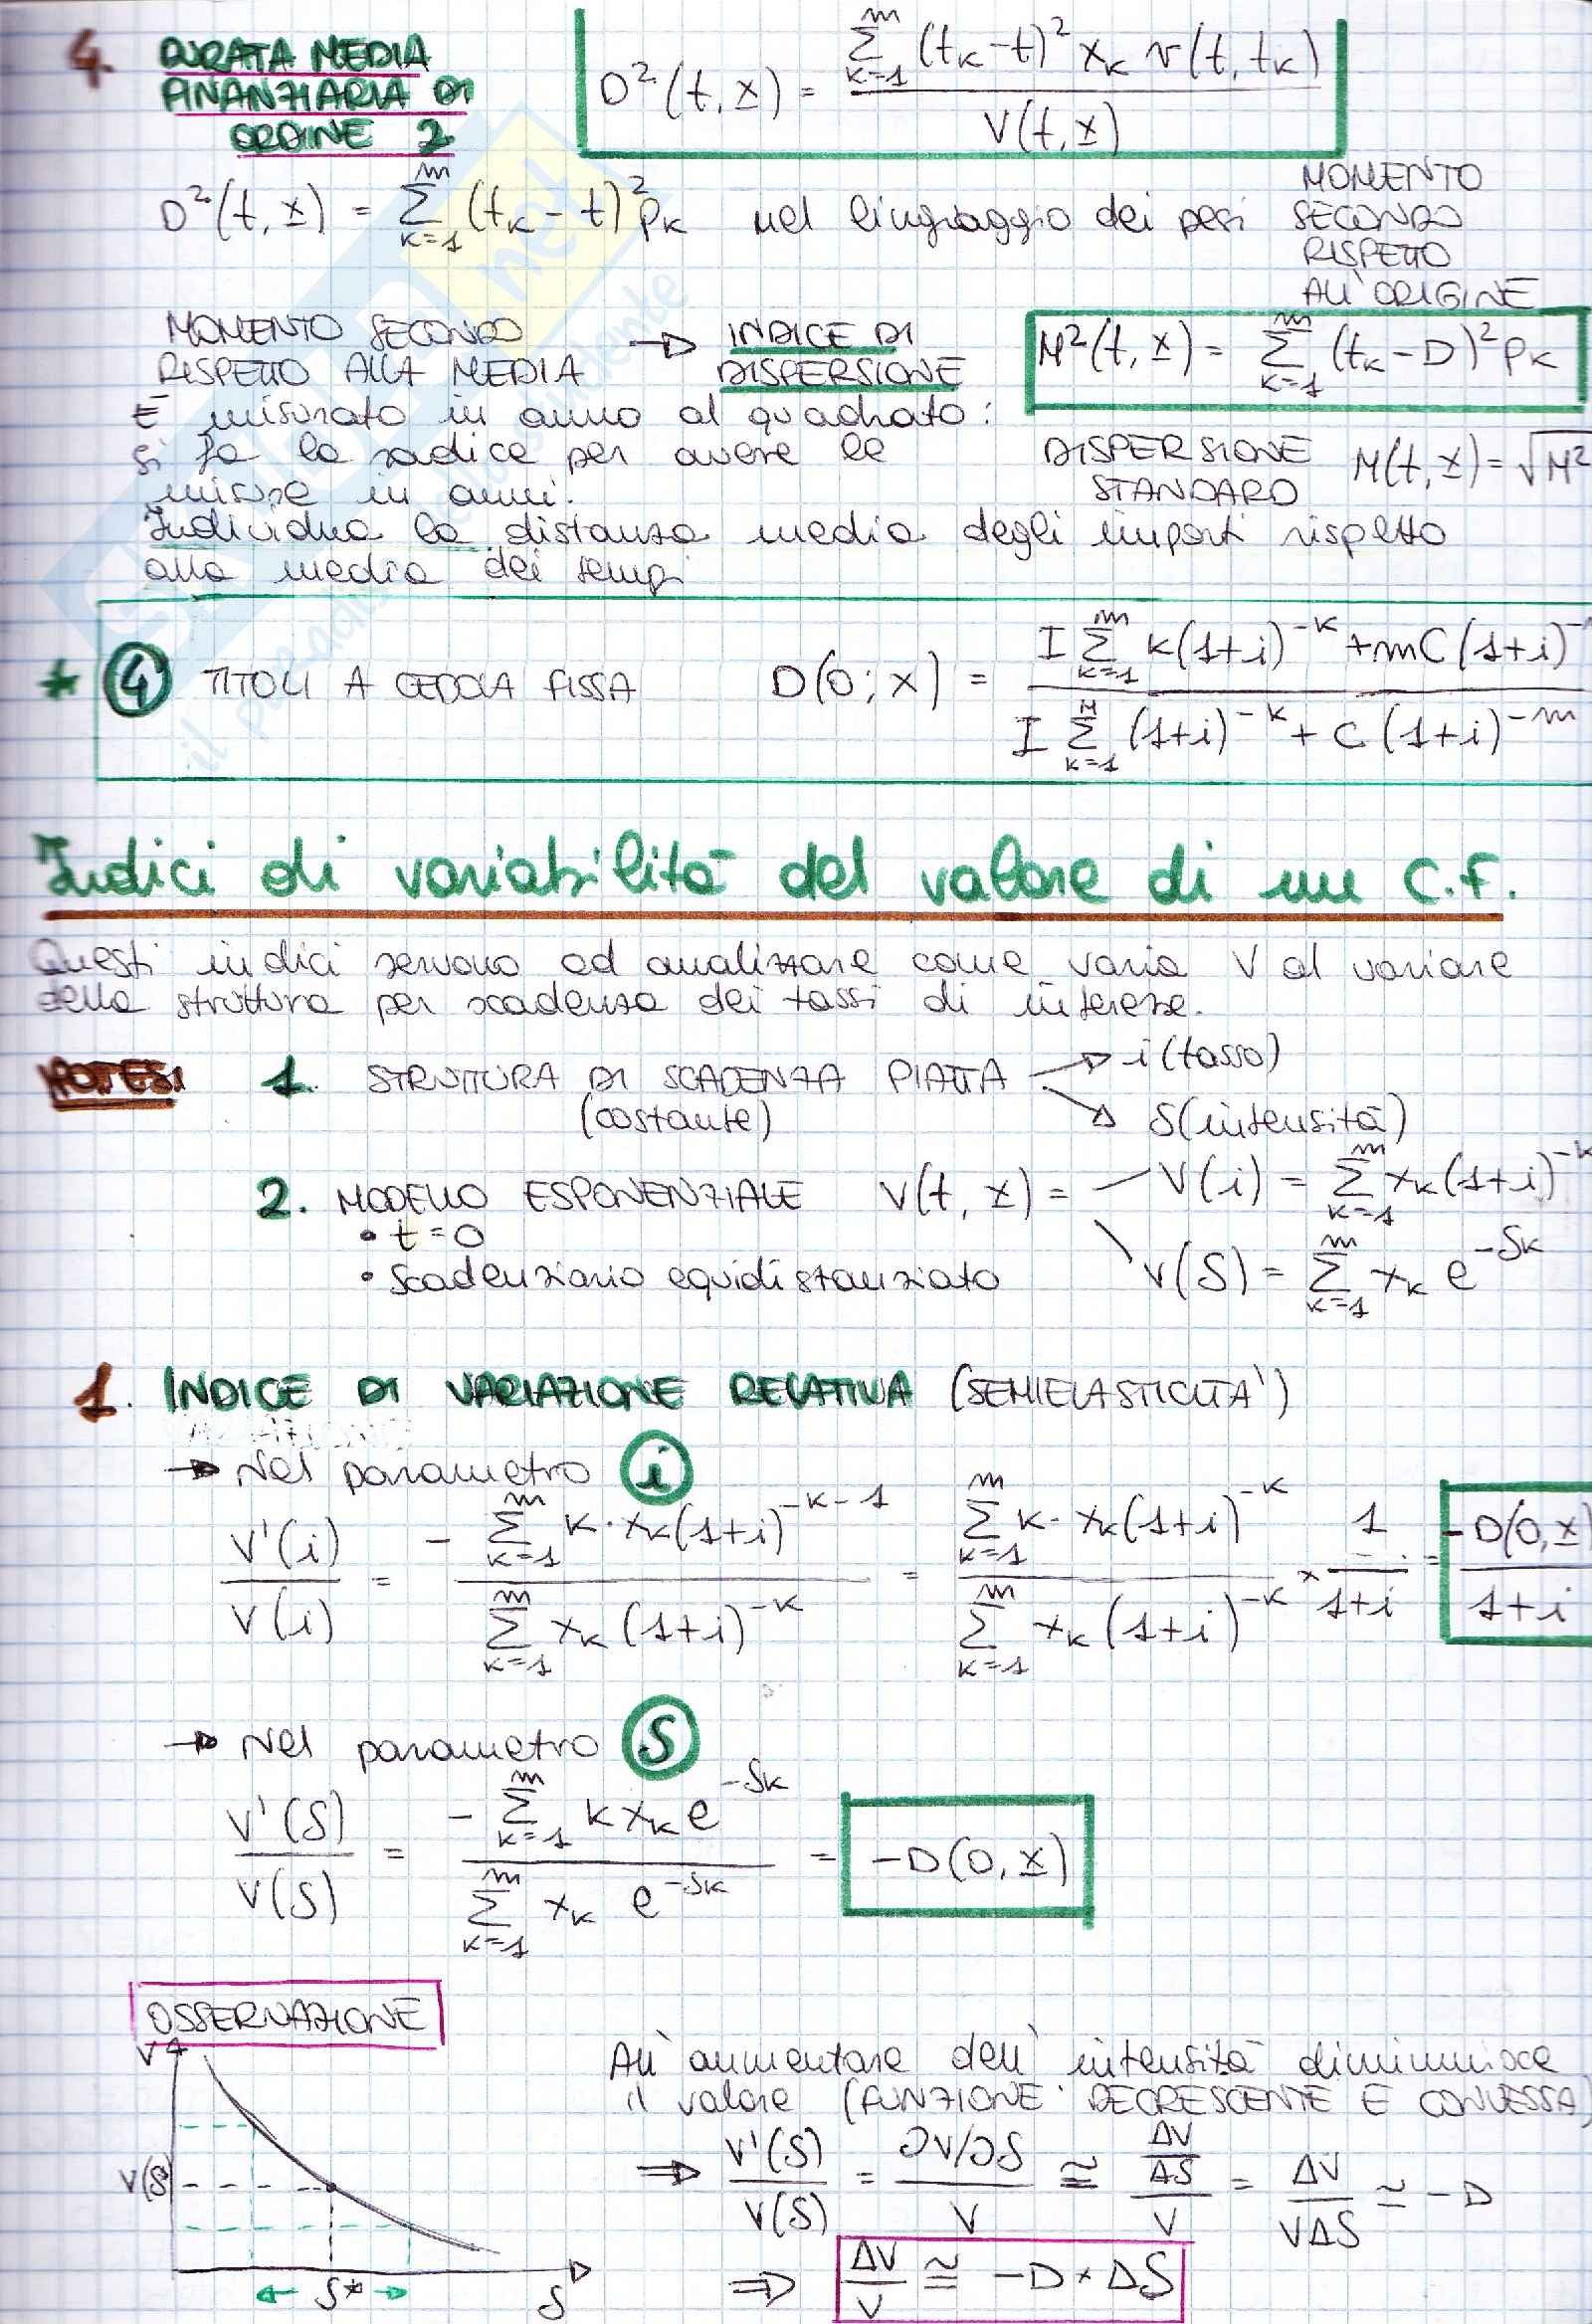 4. DURATA MEDIA
FINANZIARIA DI
ORDINE 2
D²(t, x) = Σ_{k=1}^{m} (t_k - t)² x_k v(t, t_k) / V(t, x)
D²(t, x) = Σ_{k=1}^{m} (t_k - t)² p_k nel linguaggio dei pesi
MOMENTO
SECONDO
RISPETTO
ALL'ORIGINE
MOMENTO SECONDO
RISPETTO ALLA MEDIA
→ INDICE DI
DISPERSIONE
M²(t, x) = Σ_{k=1}^{m} (t_k - D)² p_k
È misurato in anno al quadrato:
si fa la radice per avere le
misure in anni.
DISPERSIONE
STANDARD
M(t, x) = √M²
Individua la distanza media degli importi rispetto
alla media dei tempi
* 4 TITOLI A CEDOLA FISSA D(0; x) = I Σ_{k=1}^{m} k(1+i)^{-k} + mC(1+i)^{-} / I Σ_{k=1}^{M} (1+i)^{-k} + C(1+i)^{-m}
Indici di variabilità del valore di un C.F.
Questi indici servono ad analizzare come varia V al variare
della struttura per scadenza dei tassi di interesse.
IPOTESI 1. STRUTTURA DI SCADENZA PIATTA → i (tasso)
(costante) → δ (intensità)
2. MODELLO ESPONENZIALE V(t, x) = V(i) = Σ_{k=1}^{m} x_k (1+i)^{-k}
• t = 0
• Scadenziario equidistanziato V(δ) = Σ_{k=1}^{m} x_k e^{-δk}
1. INDICE DI VARIAZIONE RELATIVA (SEMIELASTICITA')
→ Nel parametro i
V'(i) / V(i) = - Σ_{k=1}^{m} k · x_k (1+i)^{-k-1} / Σ_{k=1}^{m} x_k (1+i)^{-k} = Σ_{k=1}^{m} k · x_k (1+i)^{-k} / Σ_{k=1}^{m} x_k (1+i)^{-k} × 1 / 1+i = -D(0, x) / 1+i
→ Nel parametro δ
V'(δ) / V(δ) = - Σ_{k=1}^{m} k x_k e^{-δk} / Σ_{k=1}^{m} x_k e^{-δk} = -D(0, x)
OSSERVAZIONE
V
V(δ)
δ*
δ
All'aumentare dell'intensità diminuisce
il valore (FUNZIONE DECRESCENTE E CONVESSA)
⇒ V'(δ) / V(δ) = ∂V/∂δ / V ≅ ΔV/Δδ / V = ΔV / VΔδ ≃ -D
⇒ ΔV / V ≅ -D × Δδ